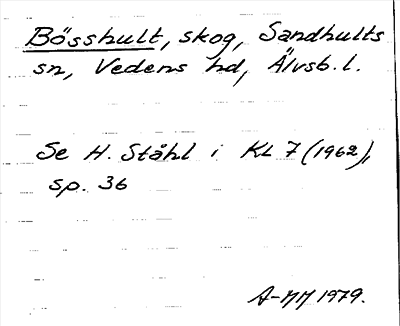 Bösshult, skog, Sandhults
sn, Vedens hd, Älvsb. l.
Se H. Ståhl i KL 7 (1962),
sp. 36
A-MM 1979.